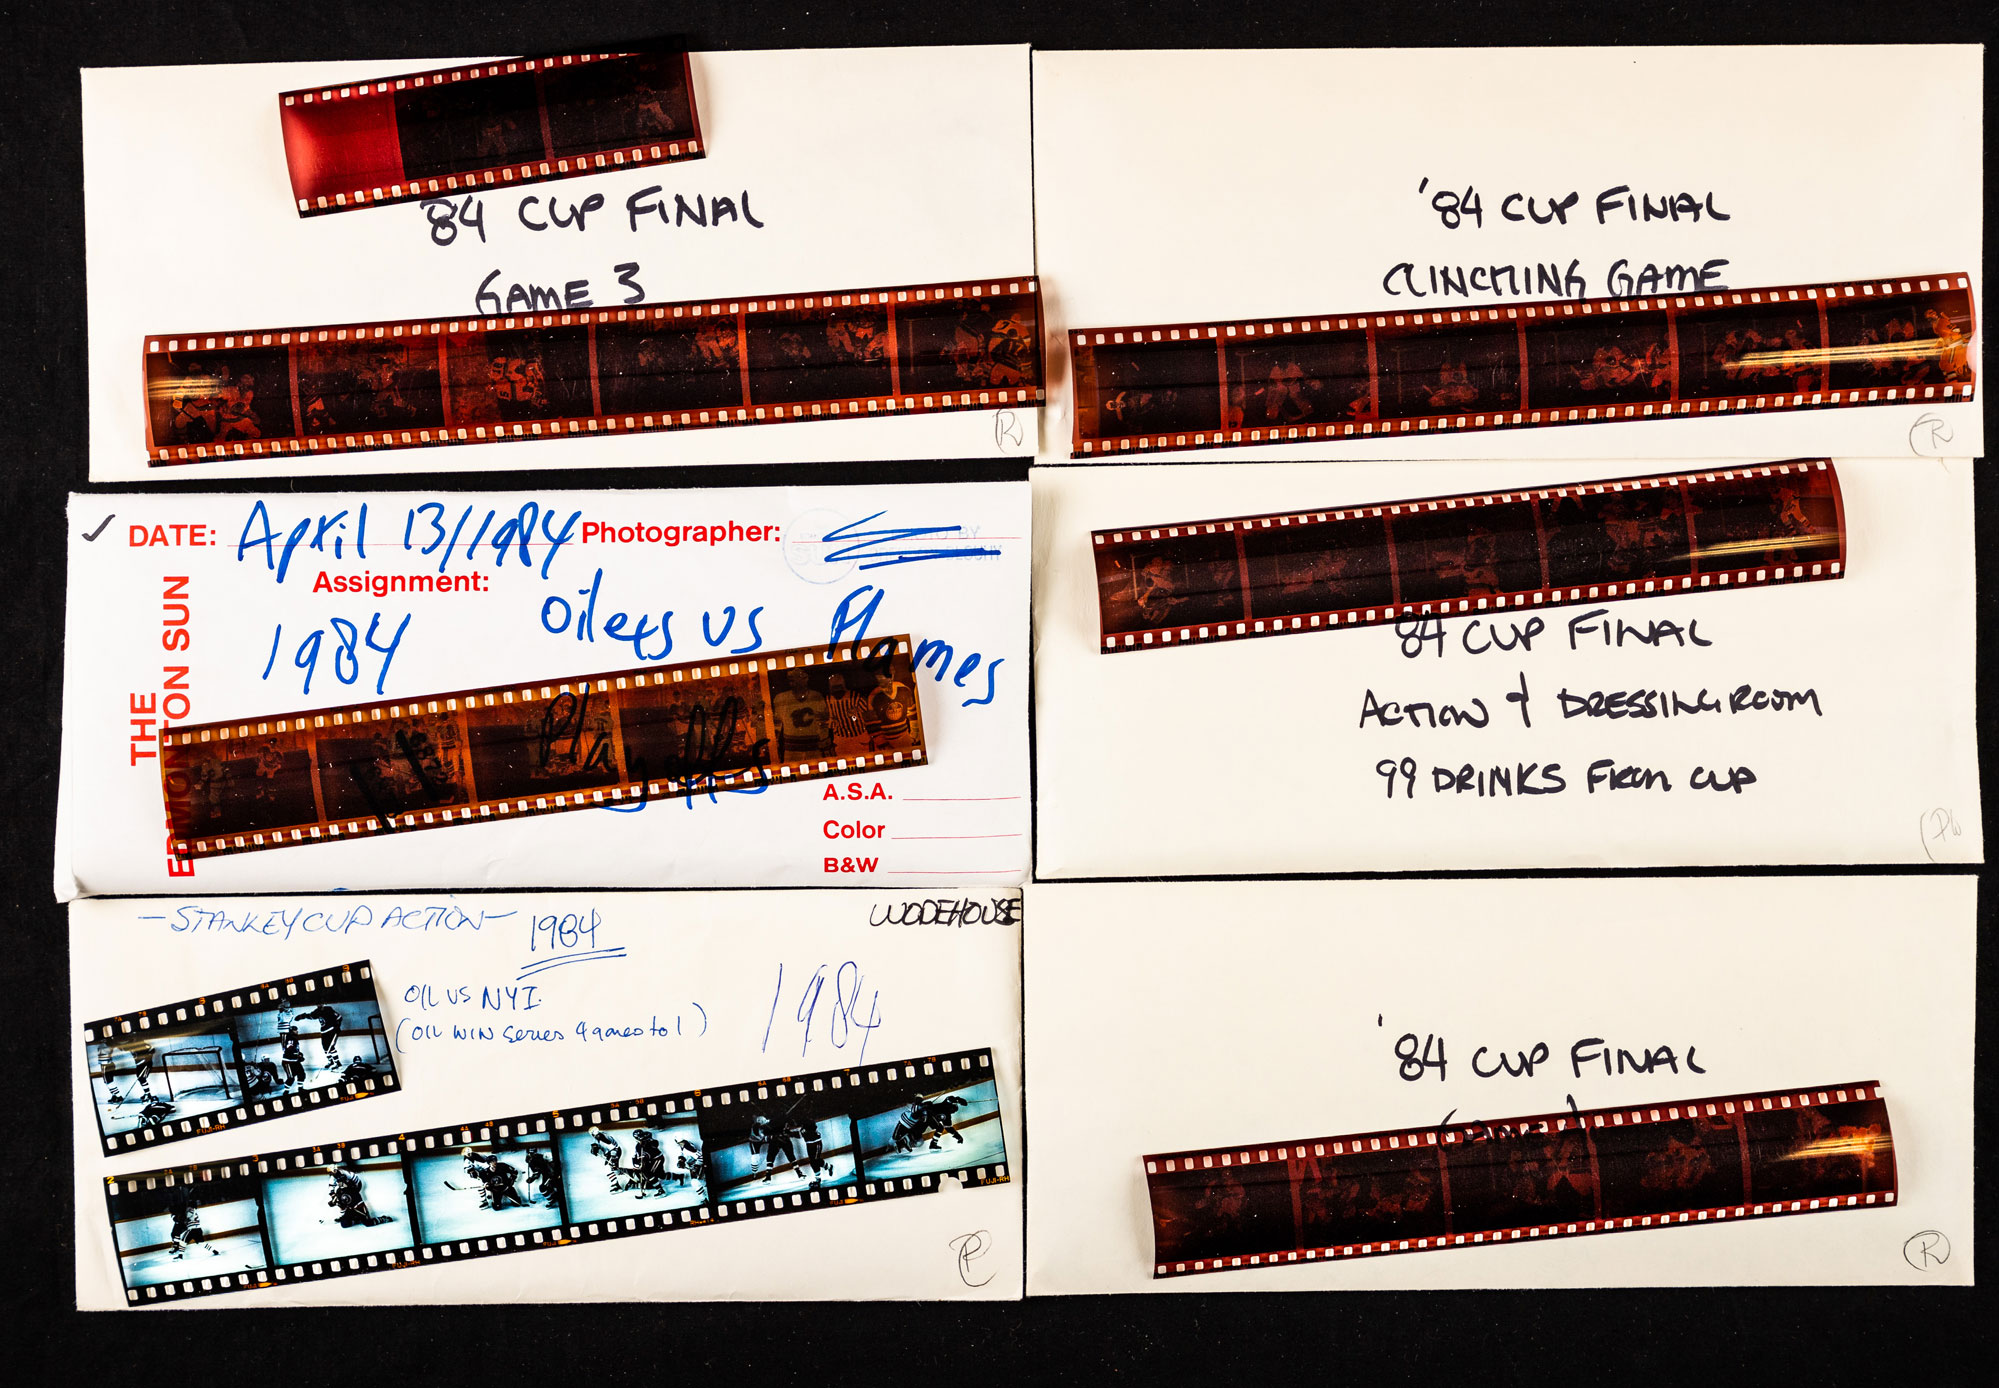 '84 CUP FINAL
GAME 3
'84 CUP FINAL
CLINCHING GAME
✓ DATE: April 13/1984 Photographer:
Assignment:
1984 Oilers vs Flames
Playoffs
THE
EDMONTON SUN
A.S.A.
Color
B&W
'84 CUP FINAL
ACTION & DRESSING ROOM
99 DRINKS FROM CUP
-STANKEY CUP ACTION- 1984
WODEHOUSE
OIL VS NYI.
(OIL WIN series 4 games to 1)
1984
FUJI-RH
FUJI-RH
R
R
R
'84 CUP FINAL